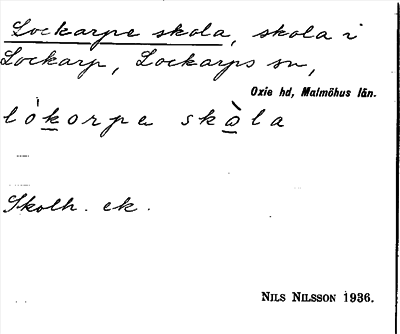 Lockarpe skola, skola i
Lockarp, Lockarps sn,
Oxie hd, Malmöhus län.
lòkorpa skòla
Skolh. ek.
NILS NILSSON 1936.